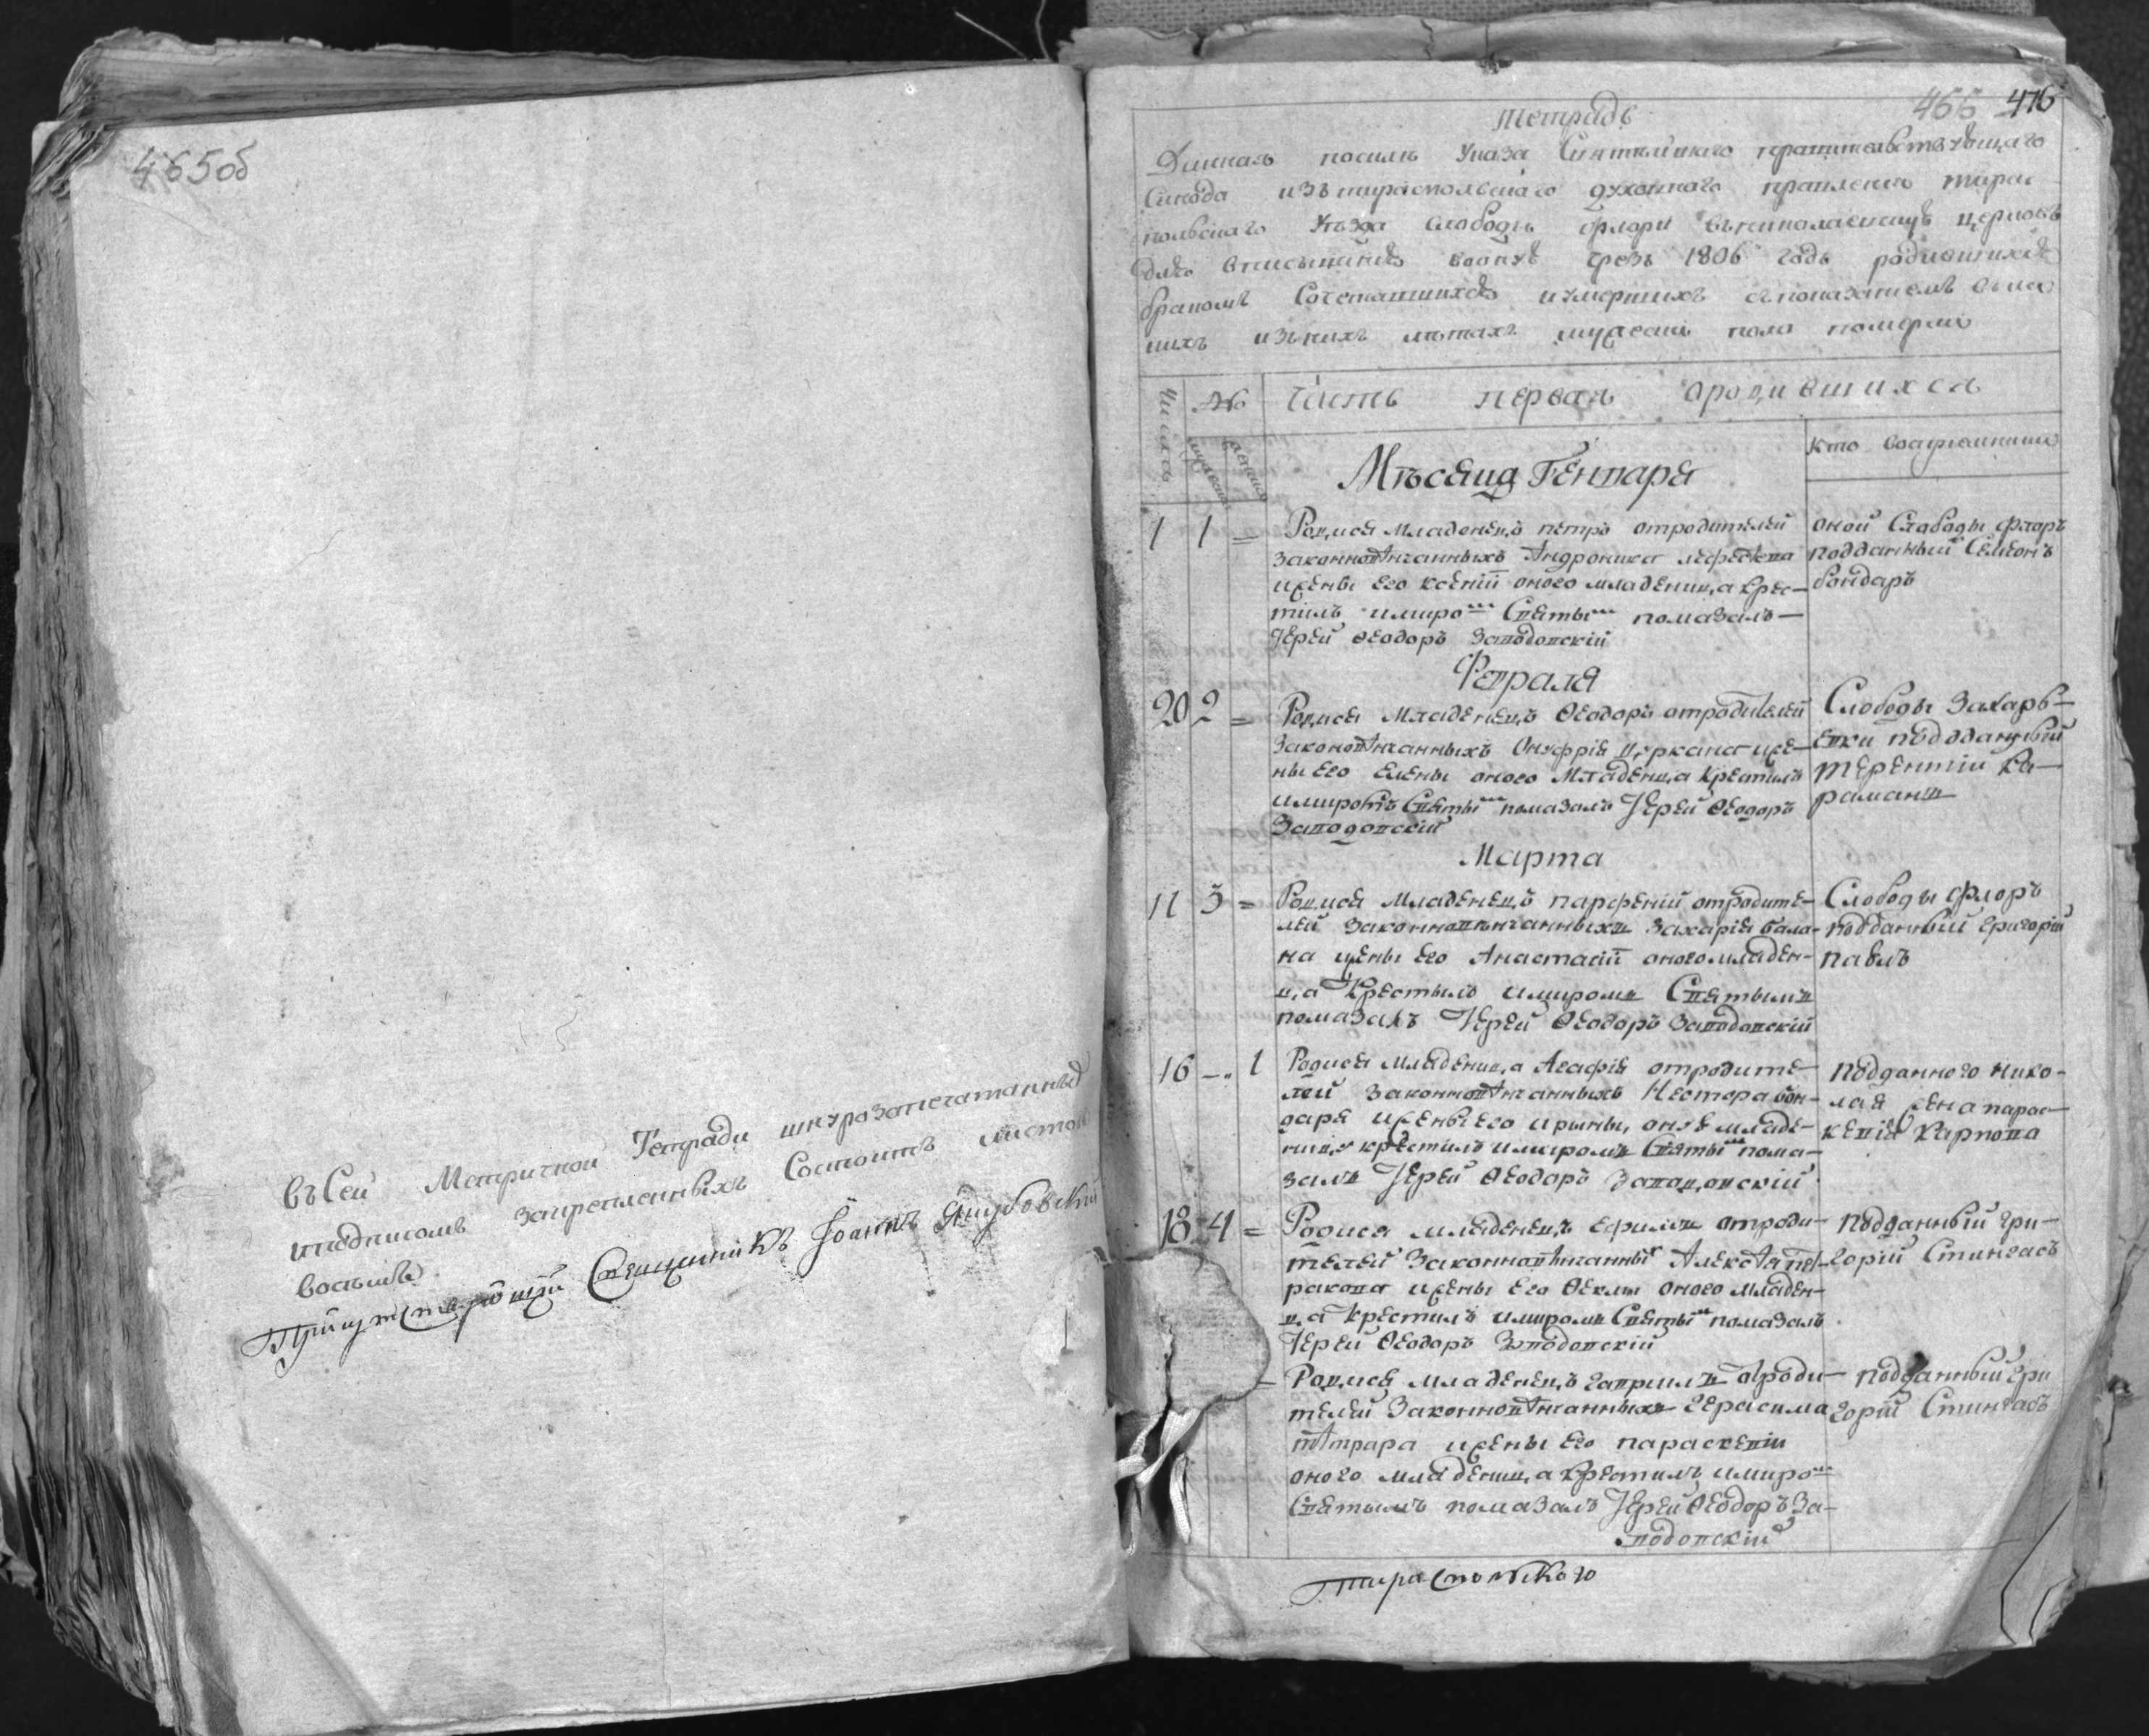 465об
въ Сей Метричной Тетради шнурозапечатанныхъ
иподписомъ закрепленныхъ Состоитъ листовъ
восемь
Присутствующій Священникъ Іоаннъ Якубовскій
466 476
Тетрадь
Данная посилѣ Указа Святѣйшаго правительствующаго
Синода изътираспольскаго духовнаго правленія тирас-
польскаго уѣзда слободы Флори въниколаевскую церковь
для вписыванія воонуѣ чрезъ 1806 годъ родившихся
бракомъ Сочетавшихся иумершихъ съпоказаніемъ
нихъ изънихъ лѣтахъ мужескій полъ померли
Числа № Часть первая ородившихся
мужеска женска
Мѣсяца Генваря
кто восприемники
1 1 = Родися Младенецъ петръ отродителей
законновѣнчанныхъ Андроника
ижены Его Ксеніи оного младенца крес-
тилъ имиромъ Святымъ помазалъ
Іерей Ѳеодоръ Заводовскій
оной Слободы флоръ
подданный Семіонъ
бондаръ
Февраля
20 2 = Родися Младенецъ Ѳеодоръ отродителей
Законовѣнчанныхъ Онуфрія цуркана иже-
ны его Елены оного Младенца крестилъ
имиромъ Святымъ помазалъ Іерей Ѳеодоръ
Заводовскій
Слободы Захарь-
Евки подданный
терентіи Ка-
раманъ
Марта
11 3 = Родися Младенецъ парфеній отродите-
лей законновѣнчанныхъ Захарія бала-
на жены его Анастасіи оногомладен-
ца Крестилъ имиромъ Святымъ
помазалъ Іерей Ѳеодоръ Заводовскій
Слободы флоръ
подданный григорій
павлъ
16 -„ 1 Родися Младеница Агафія отродите-
лей законновѣнчанныхъ Нестора бон-
даря иженыего ирины, онуѣ младе-
ницу крестилъ имиромъ Святымъ пома-
залъ Іерей Ѳеодоръ Заводовскій
подданного нико-
лая жена парас-
кевія Карпова
18 4 = Родися младенецъ Ефимъ отроди-
телей Законновѣнчанных Алексѣя
ракова ижены Его Ѳеклы оного младен-
ца крестилъ имиромъ Святымъ помазалъ
Іерей Ѳеодоръ Заводовскій
подданный гри-
горій Стингачъ
= Родися младенецъ гавриилъ отроди-
телей Законновѣнчанныхъ герасима
ижены Его параскевіи
оного младенца крестилъ имиромъ
Святымъ помазалъ Іерей Ѳеодоръ За-
водовскій
подданный гри
горій Стингачъ
Тираспольского